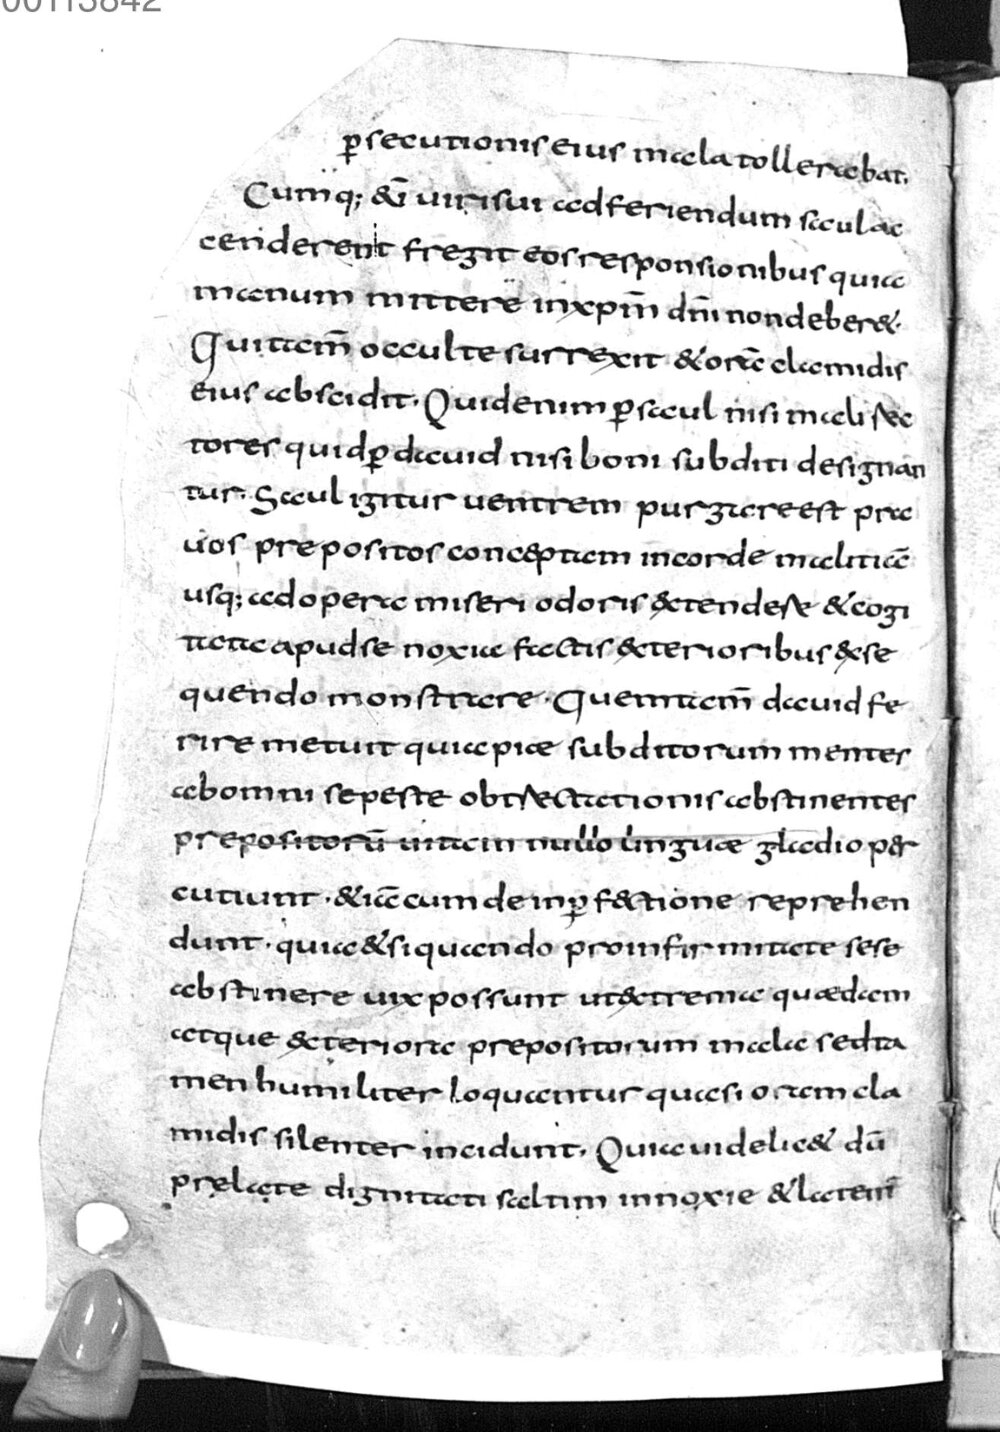 ꝑsecutionis eius mala tollerabat.
Cumq; &iā uiri sui ad feriendum saul ac
cenderent fregit eos responsionibus quia
manum mittere inxpm̄ dn̄i non deber&.
Qui tam̄ occulte surrexit & orā clamidis
eius abscidit. Quid enim ꝑ saul nisi mali rec
tores quid ꝑ dauid nisi boni subditi designan
tur. Saul igitur uentrem purgare est pra
uos prepositos conceptam incorde malitiā
usq; ad opera miseri odoris &tendere & cogi
tata apud se noxia factis &terioribus &se
quendo monstrare. Quem tam̄ dauid fe
rire metuit quia piae subditorum mentes
ab omni se peste obtrectationis abstinentes
prepositorū uitam nullo linguae gladio per
cutiunt. &iā cum de inꝑf&tione reprehen
dunt. quia & si quando pro infirmitate sese
abstinere uix possunt ut &trema quaedam
atque &teriora prepositorum mala sed ta
men humiliter loquantur quasi oram cla
midis silenter incidunt. Quia uidelic& dū
prelate dignitati saltim innoxie & latent̄